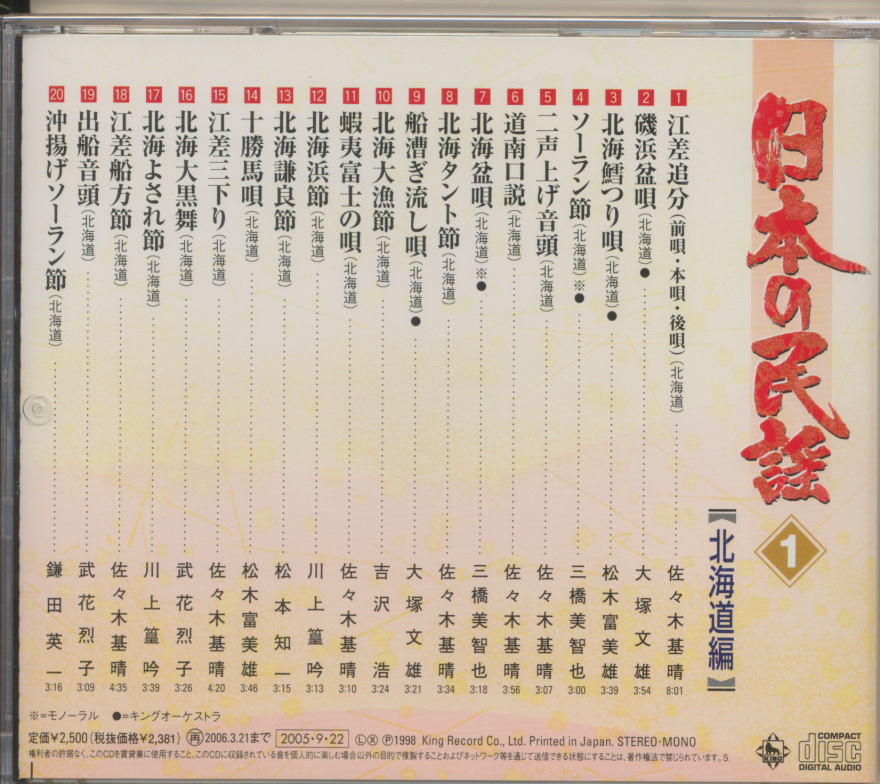 日本の民謡
1
【北海道編】
1 江差追分(前唄・本唄・後唄)(北海道) 佐々木基晴 8:01
2 磯浜盆唄(北海道)● 大塚文雄 3:54
3 北海鱈つり唄(北海道)● 松木富美雄 3:39
4 ソーラン節(北海道)※● 三橋美智也 3:00
5 二声上げ音頭(北海道) 佐々木基晴 3:07
6 道南口説(北海道) 佐々木基晴 3:56
7 北海盆唄(北海道)※● 三橋美智也 3:18
8 北海タント節(北海道) 佐々木基晴 3:34
9 船漕ぎ流し唄(北海道)● 大塚文雄 3:21
10 北海大漁節(北海道) 吉沢浩 3:24
11 蝦夷富士の唄(北海道) 佐々木基晴 3:10
12 北海浜節(北海道) 川上篁吟 3:13
13 北海謙良節(北海道) 松本知一 3:15
14 十勝馬唄(北海道) 松木富美雄 3:46
15 江差三下り(北海道) 佐々木基晴 4:20
16 北海大黒舞(北海道) 武花烈子 3:26
17 北海よされ節(北海道) 川上篁吟 3:39
18 江差船方節(北海道) 佐々木基晴 4:35
19 出船音頭(北海道) 武花烈子 3:09
20 沖揚げソーラン節(北海道) 鎌田英一 3:16
※=モノーラル ●=キングオーケストラ
定価¥2,500(税抜価格¥2,381) 再 2006.3.21まで 2005・9・22 ⓁⓍ Ⓟ1998 King Record Co., Ltd. Printed in Japan. STEREO・MONO
権利者の許諾なく、このCDを賃貸業に使用すること、このCDに収録されている音を個人的に楽しむ場合以外の目的で複製することおよびネットワーク等を通じて送信できる状態にすることは、著作権法で禁じられています。S.
KING
COMPACT
disc
DIGITAL AUDIO